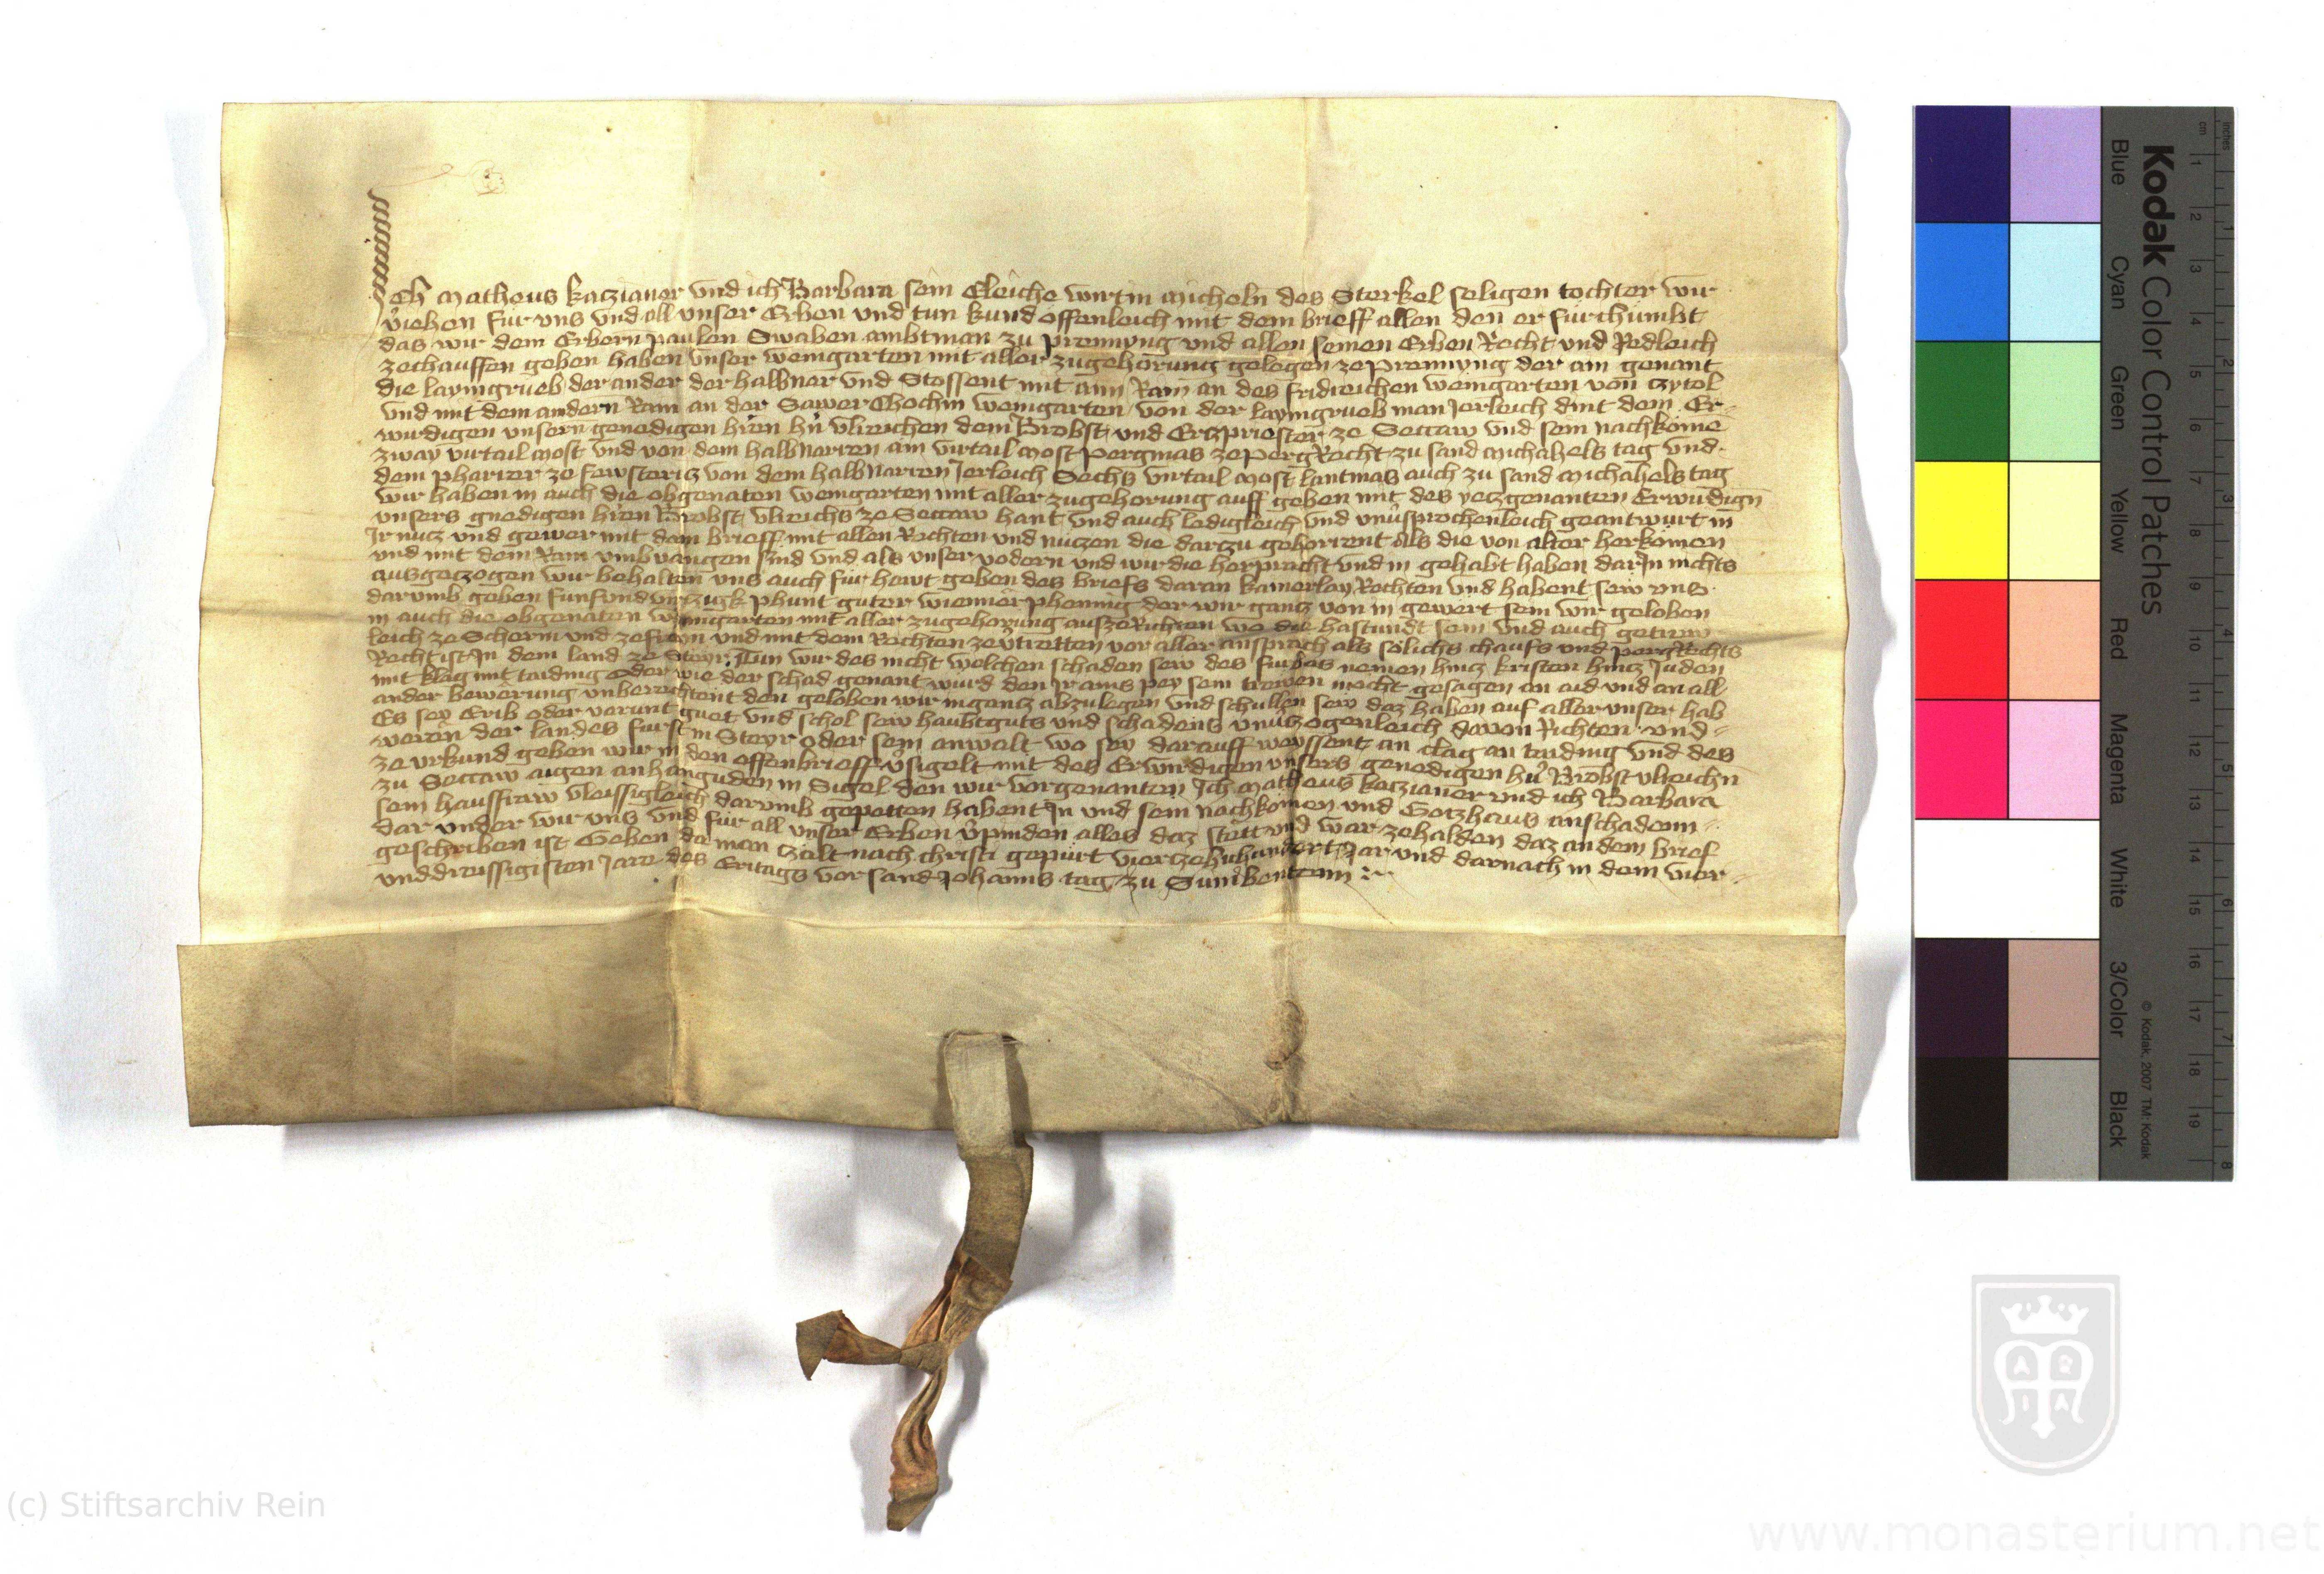 Ich Matheus kaczianer vnd ich Barbara sein Eleiche wirtin Micheln des Sterkel seligen tochter wir
v̓iehen fur vns vnd all vnser Erben vnd tun kund offenleich mit dem brieff allen den er furchumbt
das wir dem Erbern paulen Swaben ambtman zu premnyng vnd allen seinen Erben Recht vnd Redleich
zechauffen geben haben vnser weingarten mit aller zugehorung gelegen ze premnyng der ain genant
die laymgrueb der ander der halbnar vnd Stossent mit aim Rain an des fridreichen weingarten von czytol
vnd mit dem andern Rain an der Sawer Chochin weingarten von der laymgrueb man Jerleich dint dem Er-
wirdigen vnsern genedigen h̓ren h̓n vlreichen dem Brobst vnd Erczpriester ze Seccaw vnd sein nachkome
zway virtail most vnd von dem halbnarren ain virtail most pergmas ze pergRecht zu sand michahels tag vnd
dem pharrer ze fewstericz von dem halbnarren Jerleich Sechs virtail most lantmas auch zu sand michahels tag
wir haben in auch die obgenaten weingarten mit aller zugehorung auff geben mit des yeczgenanten Erwirdign̄
vnsers gnedigen h̓ren Brobst vlreichs ze Seccaw hant vnd auch ledigleich vnd vnu̓sprochenleich geantwurt in
Jr nucz vnd gewer mit dem brieff mit allen Rechten vnd nuczen die darczu gehorrent Als die von alter herkomen
vnd mit dem Rain vmbvangen sind vnd als vnser vodern vnd wir die herpracht vnd in gehabt haben darJn nichts
ausgeczogen wir behalten vns auch fur hewt geben des briefs daran kainerlay Rechten vnd habent sew vns
darumb geben funfvnd virczigk phunt guter wienner phennig der wir gancz von in gewert sein wir geloben
in auch die obgenaten weingarten mit aller zugehorung auszeRichten wo die hastundt sein vnd auch getrew
leich ze Scherm vnd zefreyn vnd mit dem Rechten zeu̓tretten vor aller ansprach als solichs chaufs vnd pergRechts
Recht ist Jn dem land ze Steyr Tun wir des nicht welchen schaden sew des furbas nemen hincz kristen hincz Juden
mit klag mit taiding oder wie der schad genant wurd den Jr ains pey sein trewen mocht gesagen an aid vnd an all
ander bewerung vnberechtent den geloben wir in gancz abzulegen vnd schullen sew daz haben auf aller vnser hab
Es sey Erib oder varunt guet vnd schol sew haubtguts vnd schadens vnu̓czogenleich davon Richten vnd-
werein der landes furst in Steyr oder sein anwalt wo sey darauff weyssent an clag an taiding vnd des
ze vrkund geben wir in den offenbrieff v̓sigelt mit des Erwirdigen vnsers genedigen h̓n Brobst vlreichn̄
zu Seccaw aigen anhangunden in Sigel den wir vorgenanten Jch matheus kaczianer vnd ich Barbara
sein hausfraw vleissigleich darumb gepetten habent Jn vnd sein nachkomen vnd Gotzhaus anschadenn-
dar vnder wir vns vnd fur all vnser Erben v̓pinden alles daz stett vnd war zehalden daz an dem brief
geschriben ist Geben da man czalt nach christi gepurt vierczehnhundert Jar vnd darnach in dem vier-
vnddreissigisten Jare des Eritags vor sand Johanns tag zu Sunnbentenn
Kodak Color Control Patches
Blue Cyan Green Yellow Red Magenta White 3/Color Black
© Kodak, 2007 TM: Kodak
inches 1 2 3 4 5 6 7 8
cm 1 2 3 4 5 6 7 8 9 10 11 12 13 14 15 16 17 18 19
ARIA
(c) Stiftsarchiv Rein
www.monasterium.net